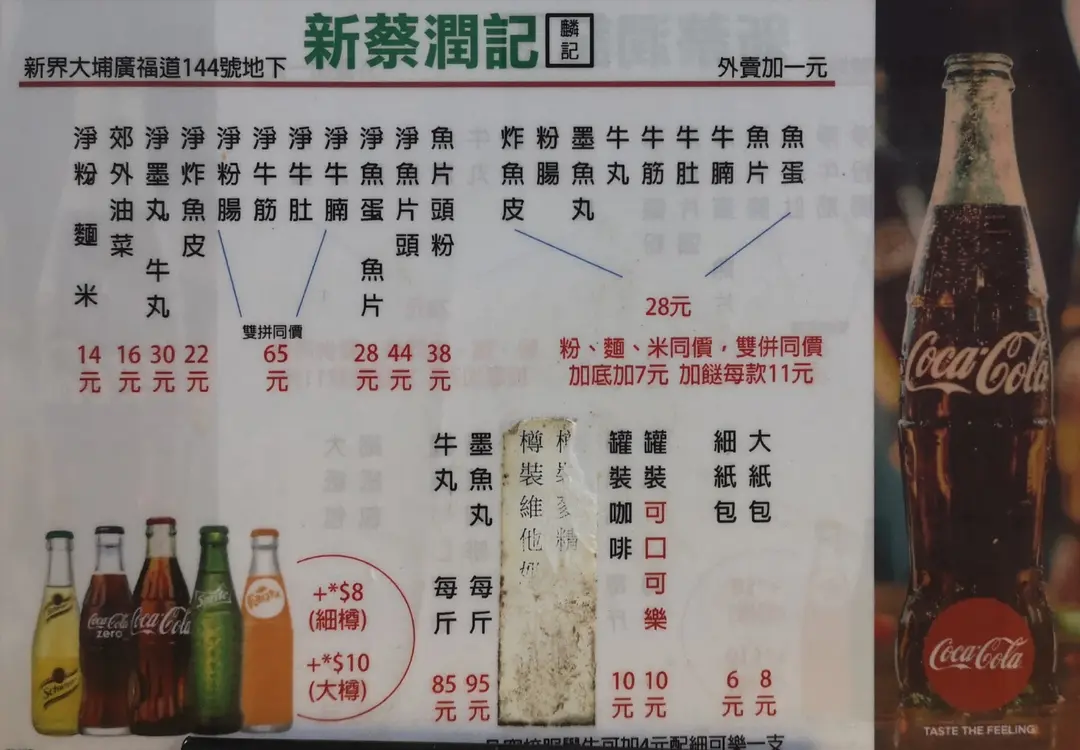 新蔡潤記
麟記
新界大埔廣福道144號地下
外賣加一元
魚蛋
魚片
牛腩
牛肚
牛筋
牛丸
墨魚丸
粉腸
炸魚皮
28元
粉、麵、米同價，雙併同價
加底加7元 加餸每款11元
魚片頭粉 38元
淨魚片頭 44元
淨魚蛋 魚片 28元
淨牛腩
淨牛肚
淨牛筋
淨粉腸
雙拼同價
65元
淨炸魚皮 22元
淨墨丸 牛丸 30元
郊外油菜 16元
淨粉 麵 米 14元
大紙包 8元
細紙包 6元
罐裝可口可樂 10元
罐裝咖啡 10元
樽裝維他
墨魚丸 每斤 95元
牛丸 每斤 85元
+*$8
(細樽)
+*$10
(大樽)
Coca-Cola
zero
Coca-Cola
Sprite
Fanta
Coca-Cola
Coca-Cola
TASTE THE FEELING